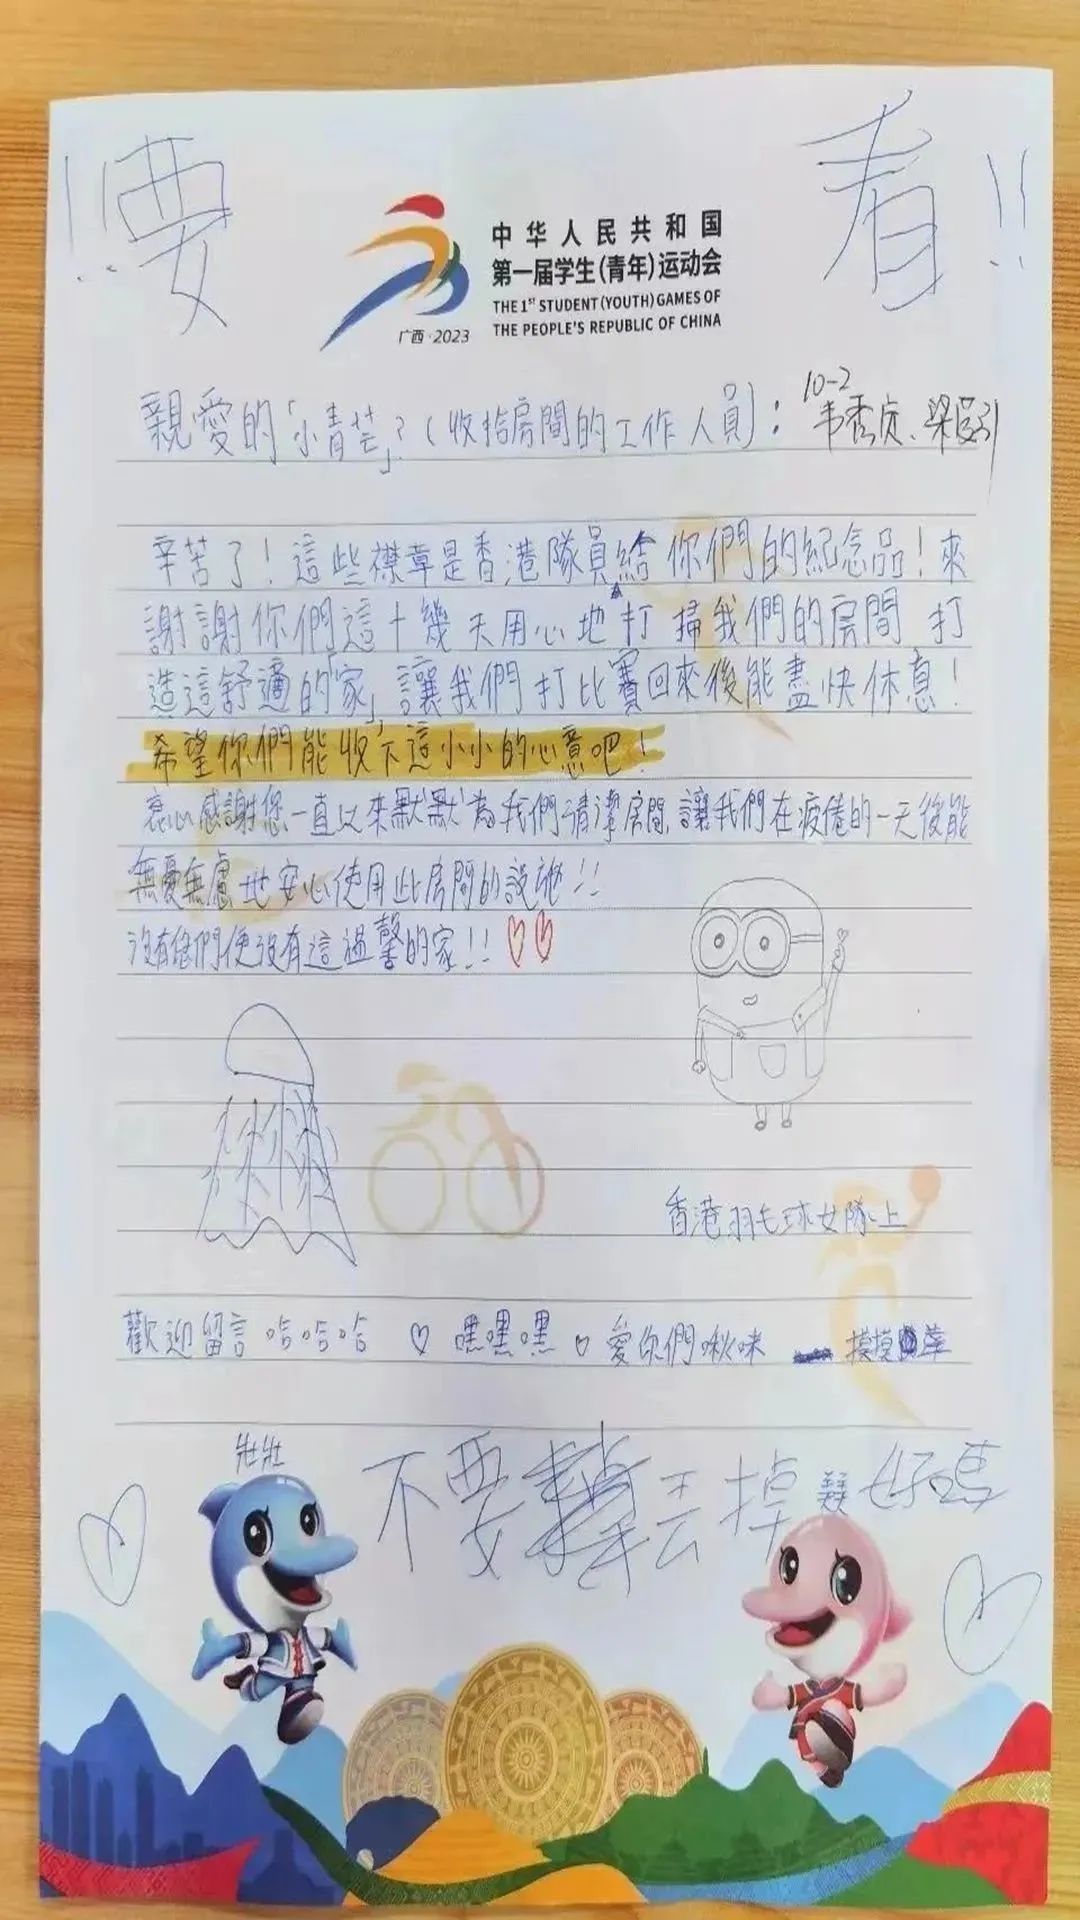 !!要 看!!
中华人民共和国
第一届学生(青年)运动会
THE 1ST STUDENT (YOUTH) GAMES OF
THE PEOPLE'S REPUBLIC OF CHINA
广西·2023
10-2
親愛的「小青芒」?(收拾房間的工作人員):
韦秀贞、梁
辛苦了!這些襟章是香港隊員給你們的紀念品!來
謝謝你們這十幾天用心地打掃我們的房間 打
造這舒適的「家」讓我們打比賽回來後能盡快休息!
希望你們能收下這小小的心意吧!
衷心感謝您一直以來默默為我們清潔房間,讓我們在疲倦的一天後能
無憂無慮地安心使用此房間的設施!!
沒有您們便沒有這溫馨的家!!
香港羽毛球女隊上
歡迎留言 哈哈哈 ♡ 嘿嘿嘿 ♡ 愛你們啾咪 摸摸
壯壯
不要丟掉 好嗎
美美